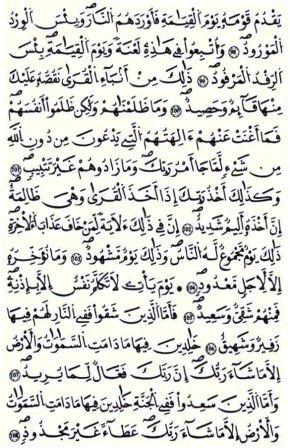 يَقْدُمُ قَوْمَهُ يَوْمَ الْقِيَامَةِ فَأَوْرَدَهُمُ النَّارَ وَبِئْسَ الْوِرْدُ
الْمَوْرُودُ ۝٩٨ وَأُتْبِعُوا فِي هَٰذِهِ لَعْنَةً وَيَوْمَ الْقِيَامَةِ بِئْسَ
الرِّفْدُ الْمَرْفُودُ ۝٩٩ ذَٰلِكَ مِنْ أَنبَاءِ الْقُرَىٰ نَقُصُّهُ عَلَيْكَ
مِنْهَا قَائِمٌ وَحَصِيدٌ ۝١٠٠ وَمَا ظَلَمْنَاهُمْ وَلَٰكِن ظَلَمُوا أَنفُسَهُمْ
فَمَا أَغْنَتْ عَنْهُمْ آلِهَتُهُمُ الَّتِي يَدْعُونَ مِن دُونِ اللَّهِ
مِن شَيْءٍ لَّمَّا جَاءَ أَمْرُ رَبِّكَ وَمَا زَادُوهُمْ غَيْرَ تَتْبِيبٍ ۝١٠١
وَكَذَٰلِكَ أَخْذُ رَبِّكَ إِذَا أَخَذَ الْقُرَىٰ وَهِيَ ظَالِمَةٌ
إِنَّ أَخْذَهُ أَلِيمٌ شَدِيدٌ ۝١٠٢ إِنَّ فِي ذَٰلِكَ لَآيَةً لِّمَنْ خَافَ عَذَابَ الْآخِرَةِ
ذَٰلِكَ يَوْمٌ مَّجْمُوعٌ لَّهُ النَّاسُ وَذَٰلِكَ يَوْمٌ مَّشْهُودٌ ۝١٠٣ وَمَا نُؤَخِّرُهُ
إِلَّا لِأَجَلٍ مَّعْدُودٍ ۝١٠٤ يَوْمَ يَأْتِ لَا تَكَلَّمُ نَفْسٌ إِلَّا بِإِذْنِهِ
فَمِنْهُمْ شَقِيٌّ وَسَعِيدٌ ۝١٠٥ فَأَمَّا الَّذِينَ شَقُوا فَفِي النَّارِ لَهُمْ فِيهَا
زَفِيرٌ وَشَهِيقٌ ۝١٠٦ خَالِدِينَ فِيهَا مَا دَامَتِ السَّمَاوَاتُ وَالْأَرْضُ
إِلَّا مَا شَاءَ رَبُّكَ إِنَّ رَبَّكَ فَعَّالٌ لِّمَا يُرِيدُ ۝١٠٧
وَأَمَّا الَّذِينَ سُعِدُوا فَفِي الْجَنَّةِ خَالِدِينَ فِيهَا مَا دَامَتِ السَّمَاوَاتُ
وَالْأَرْضُ إِلَّا مَا شَاءَ رَبُّكَ عَطَاءً غَيْرَ مَجْذُوذٍ ۝١٠٨